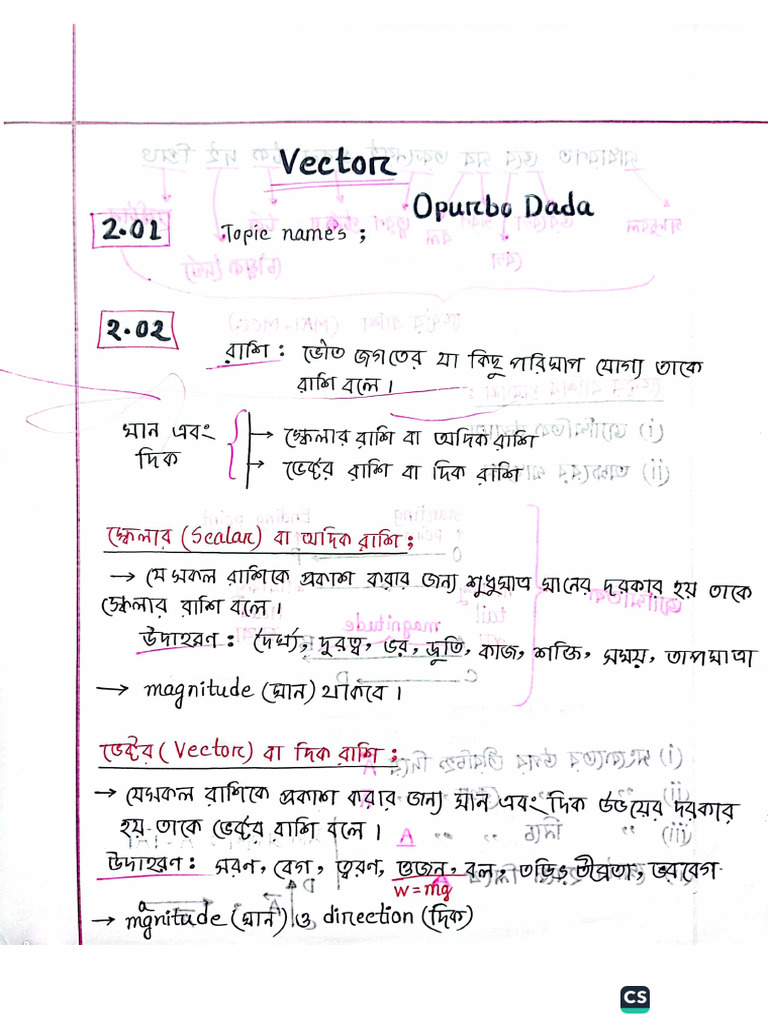 Vector
Opurbo Dada
2.01 Topic names ;
2.02
রাশি : ভৌত জগতের যা কিছু পরিমাপ যোগ্য তাকে
রাশি বলে।
মান এবং
দিক
→ স্কেলার রাশি বা অদিক রাশি
→ ভেক্টর রাশি বা দিক রাশি
স্কেলার (Scalar) বা অদিক রাশি ;
→ যে সকল রাশিকে প্রকাশ করার জন্য শুধুমাত্র মানের দরকার হয় তাকে
স্কেলার রাশি বলে।
উদাহরণ : দৈর্ঘ্য, দুরত্ব, ভর, দ্রুতি, কাজ, শক্তি, সময়, তাপমাত্রা
→ magnitude (মান) থাকবে।
ভেক্টর (Vector) বা দিক রাশি ;
→ যেসকল রাশিকে প্রকাশ করার জন্য মান এবং দিক উভয়ের দরকার
হয় তাকে ভেক্টর রাশি বলে।
উদাহরণ : সরণ, বেগ, ত্বরণ, ওজন, বল, তড়িৎ তীব্রতা, ভরবেগ
w = mg
→ magnitude (মান) ও direction (দিক)
CS